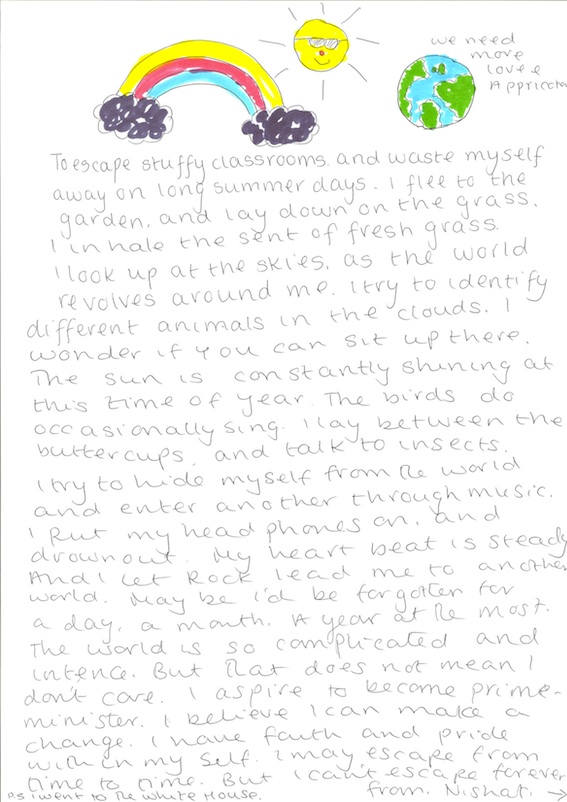 we need
more
love &
Appriceta
To escape stuffy classrooms. and waste myself
away on long summer days. I flee to the
garden, and lay down on the grass.
I inhale the sent of fresh grass.
I look up at the skies, as the world
revolves around me. I try to identify
different animals in the clouds. I
wonder if you can sit up there.
The sun is constantly shining at
this time of year. The birds do
occasionally sing. I lay between the
buttercups, and talk to insects.
I try to hide myself from the world
and enter another through music.
I Put my head phones on, and
drownout. My heart beat is steady
And I let Rock lead me to another
world. May be i'd be forgotten for
a day, a month. A year at the most.
The world is so complicated and
intence. But that does not mean I
don't care. I aspire to become prime-
minister. I believe I can make a
change. I have faith and pride
within my self. I may escape from
time to time. But I can't escape forever
P.S I went to the White House.
from. Nishat. →